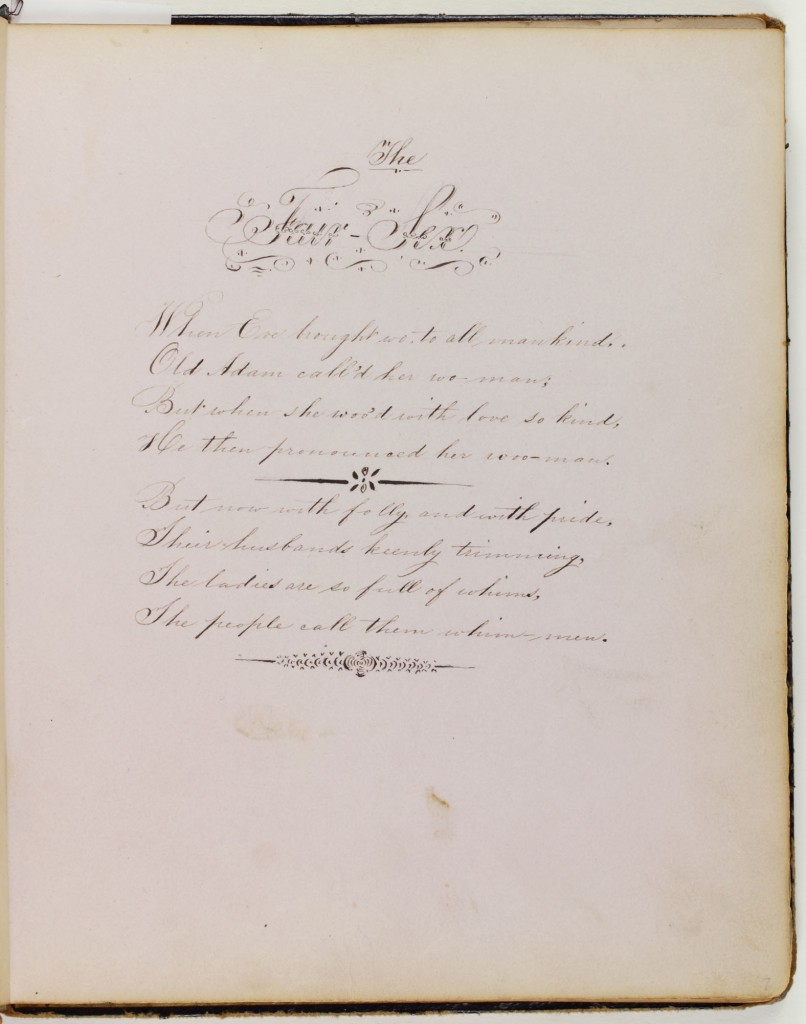 The
Fair-Sex.
When Eve brought wo. to all mankind,.
Old Adam call'd her wo-man;
But when she woo'd with love so kind,
He then pronounced her woo-man.
But now with folly, and with pride,
Their husbands keenly trimming,
The ladies are so full of whims,
The people call them whim-men.